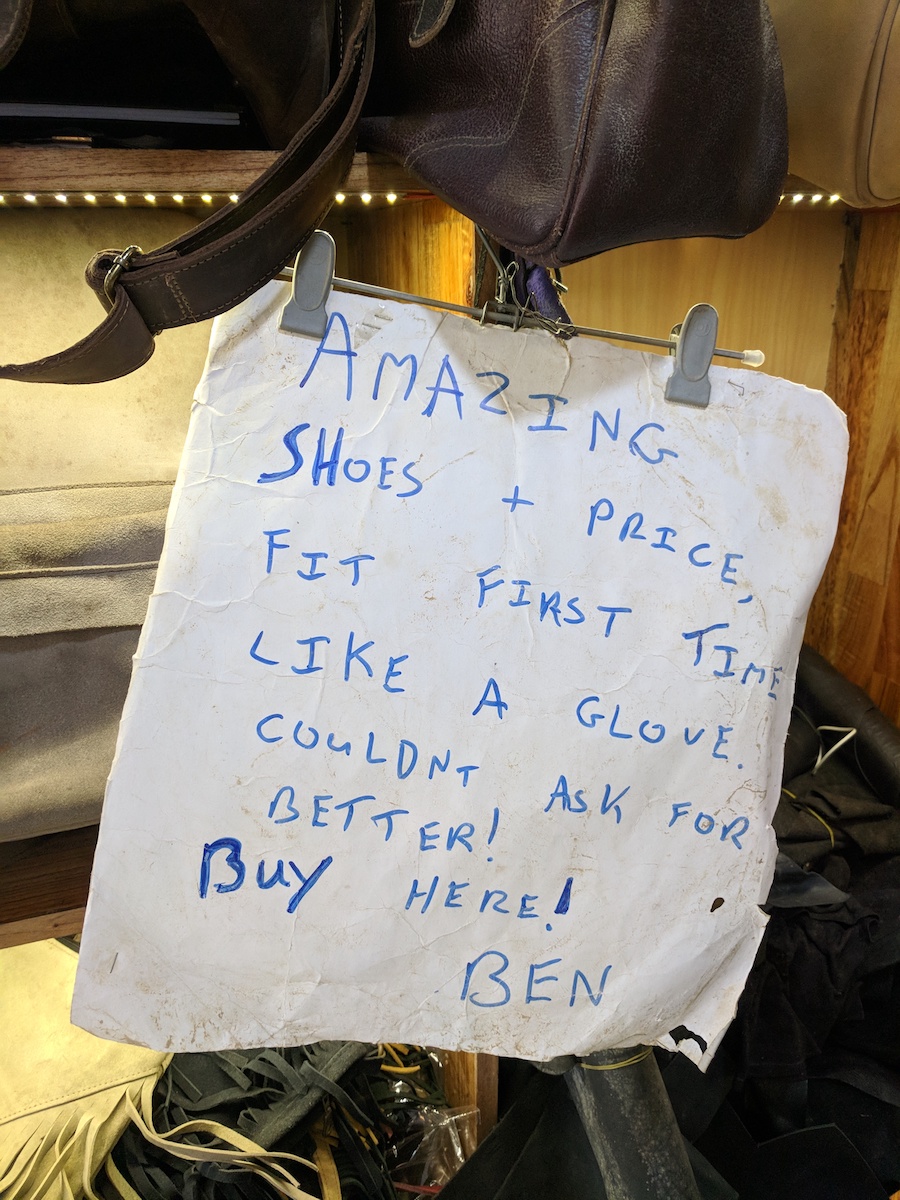 AMAZING
SHOES + PRICE,
FIT FIRST TIME
LIKE A GLOVE.
COULDNT ASK FOR
BETTER!
BUY HERE!
BEN